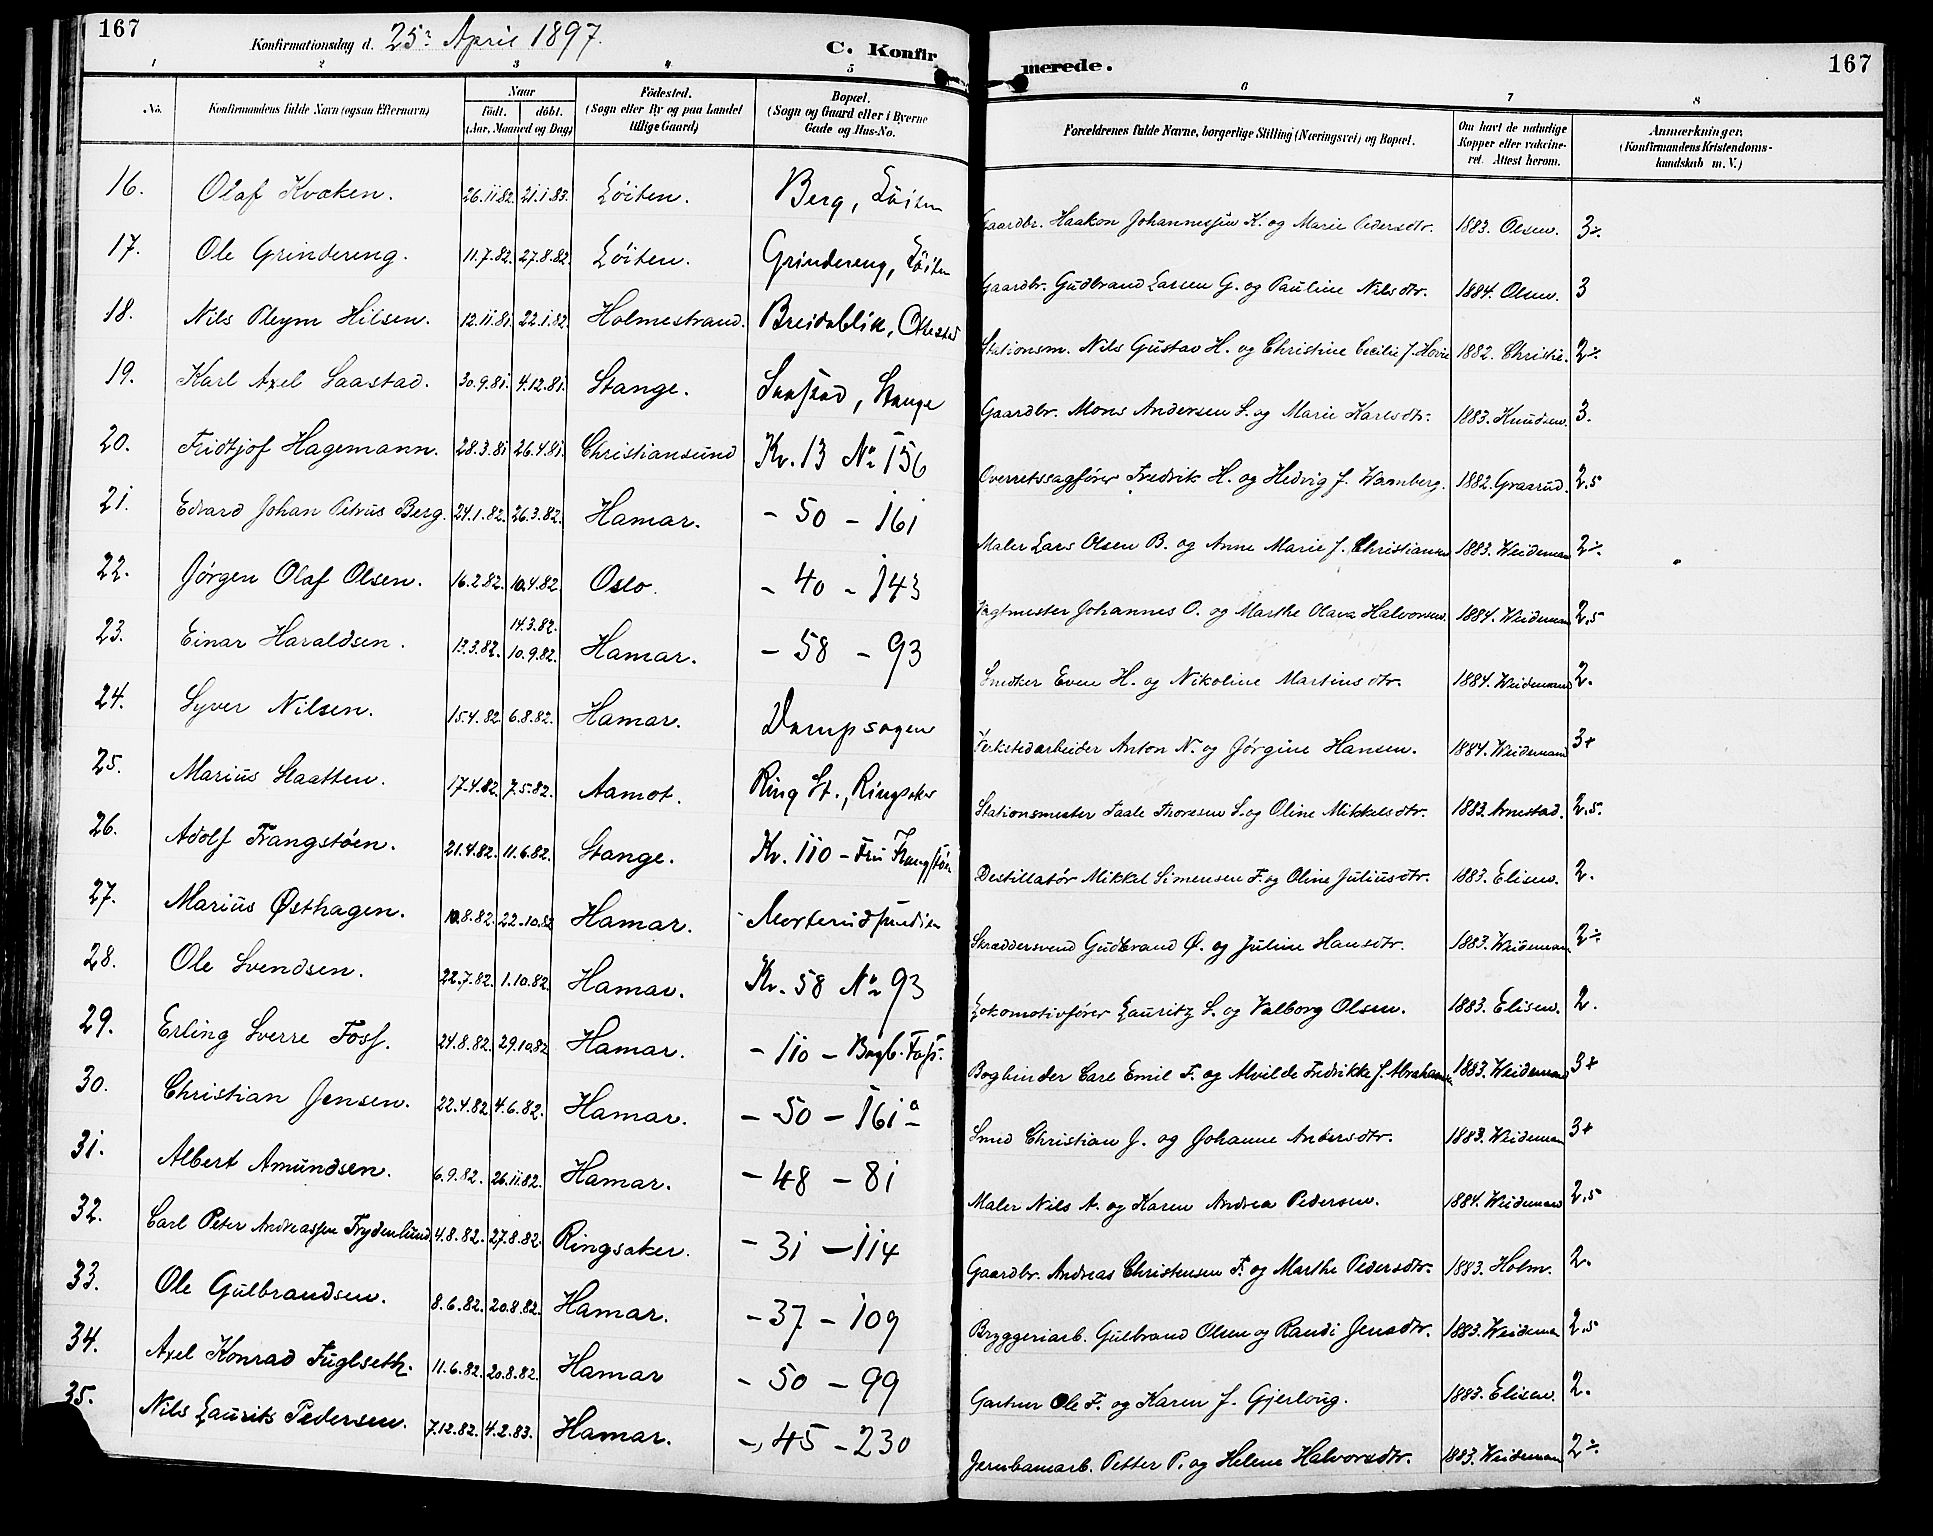 167
Konfirmationsdag d. 25r April 1897.
C. Konfirmerede.
167
1 2 3 4 5 6 7 8
No.
Konfirmandens fulde Navn (ogsaa Efternavn)
Naar
Födt. döbt.
(Aar, Maaned og Dag)
Födested.
(Sogn eller By og paa Landet tillige Gaard)
Bopæl.
(Sogn og Gaard eller i Byerne Gade og Hus-No.
Forældrenes fulde Navne, borgerlige Stilling (Næringsvei) og Bopæl.
Om havt de naturlige Kopper eller vakcineret. Attest herom.
Anmærkninger.
(Konfirmandens Kristendomskundskab m. V.)
16. Olaf Kvæken. 26.11.82. 21.1.83. Löiten. Berg, Löiten Gaardbr. Haakon Johannessen K. og Marie Pedersdtr. 1883. Olsen. 3÷.
17. Ole Grindereng. 11.7.82. 27.8.82. Löiten. Grindereng, Löiten Gaardbr. Gudbrand Larsen G. og Pauline Nilsdtr. 1884. Olsen. 3
18. Nils Pleym Hilsen. 12.11.81. 22.1.82. Holmestrand. Breidablik, Ottestad Stationsm. Nils Gustav H. og Christine Cecilie f. Hovie 1882. Christie. 2÷.
19. Karl Axel Saastad. 30.9.81. 4.12.81. Stange. Saastad, Stange Gaardbr. Mons Andersen S. og Marie Karlsdtr. 1883. Knudsen. 3.
20. Fridtjof Hagemann. 28.3.81. 26.4.81. Christiansund Kv. 13 No 156 Overretssagförer Fredrik H. og Hedvig f. Wamberg. 1882. Graarud. 2,5
21. Edvard Johan Petrus Berg. 24.1.82. 26.3.82. Hamar. - 50 - 161 Maler Lars Olsen B. og Anne Marie f. Christiansen 1883. Weideman 2÷.
22. Jörgen Olaf Olsen. 16.2.82. 10.4.82. Oslo. - 40 - 143 Vagtmester Johannes O. og Marthe Olava Halvorsen. 1884. Weideman 2,5
23. Einar Haraldsen. 13.3.82. 14.3.82. 10.9.82. Hamar. - 58 - 93 Snedker Even H. og Nikoline Martinsdtr. 1884. Weidemand 2.
24. Syver Nilsen. 15.4.82. 6.8.82. Hamar. Dampsagen Verkstedarbeider Anton N. og Jörgine Hansen. 1884. Weidemand 3+
25. Marius Slaatten. 17.4.82. 7.5.82. Aamot. Ring St., Ringsaker Stationsmester Taale Thoresen S. og Oline Mikkelsdtr. 1883. Arnestad. 2,5.
26. Adolf Frangstöen. 21.4.82. 11.6.82. Stange. Kv. 110 - Fru Frangstöen Destillatör Mikkel Simensen F. og Oline Juliusdtr. 1883. Elisen. 2.
27. Marius Østhagen. 10.8.82. 22.10.82 Hamar. - Morterudsmedien Skræddersvend Gudbrand Ø. og Juline Hansdtr. 1883. Weideman 2÷
28. Ole Svendsen. 22.7.82. 1.10.82. Hamar. Kv. 58 No 93 Lokomotivförer Lauritz S. og Valborg Olsen. 1883. Elisen. 2.
29. Erling Sverre Foss. 24.8.82. 29.10.82 Hamar. - 110 - Bogb. Foss. Bogbinder Carl Emil F. og Alvilde Fredrikke f. Abrahamsen 1883. Weidemand 3+
30. Christian Jensen. 22.4.82 4.6.82. Hamar. - 50 - 161a Smed Christian J. og Johanne Andersdtr. 1883. Weideman 3+
31. Albert Amundsen. 6.9.82. 26.11.82. Hamar. - 48 - 81 Maler Nils A. og Karen Andrea Pedersen. 1884. Weidemand 2,5
32. Carl Peter Andreassen Frydenlund 4.8.82. 27.8.82. Ringsaker. - 31 - 114 Gaardbr. Andreas Christensen F. og Marthe Pedersdtr. 1883. Holm. 2.
33. Ole Gulbrandsen. 8.6.82. 20.8.82. Hamar. - 37 - 109 Bryggeriarb. Gulbrand Olsen og Randi Jensdtr. 1883. Weideman 2,5
34. Axel Konrad Fuglseth. 11.6.82. 20.8.82. Hamar - 50 - 99 Gartner Ole F. og Karen f. Gjerloug. 1883. Elisen. 2.
35. Nils Laurits Pedersen. 7.12.82. 4.2.83. Hamar. - 45 - 230 Jernbanearb. Petter P. og Helene Halvorsdtr. 1883. Weideman 2÷.